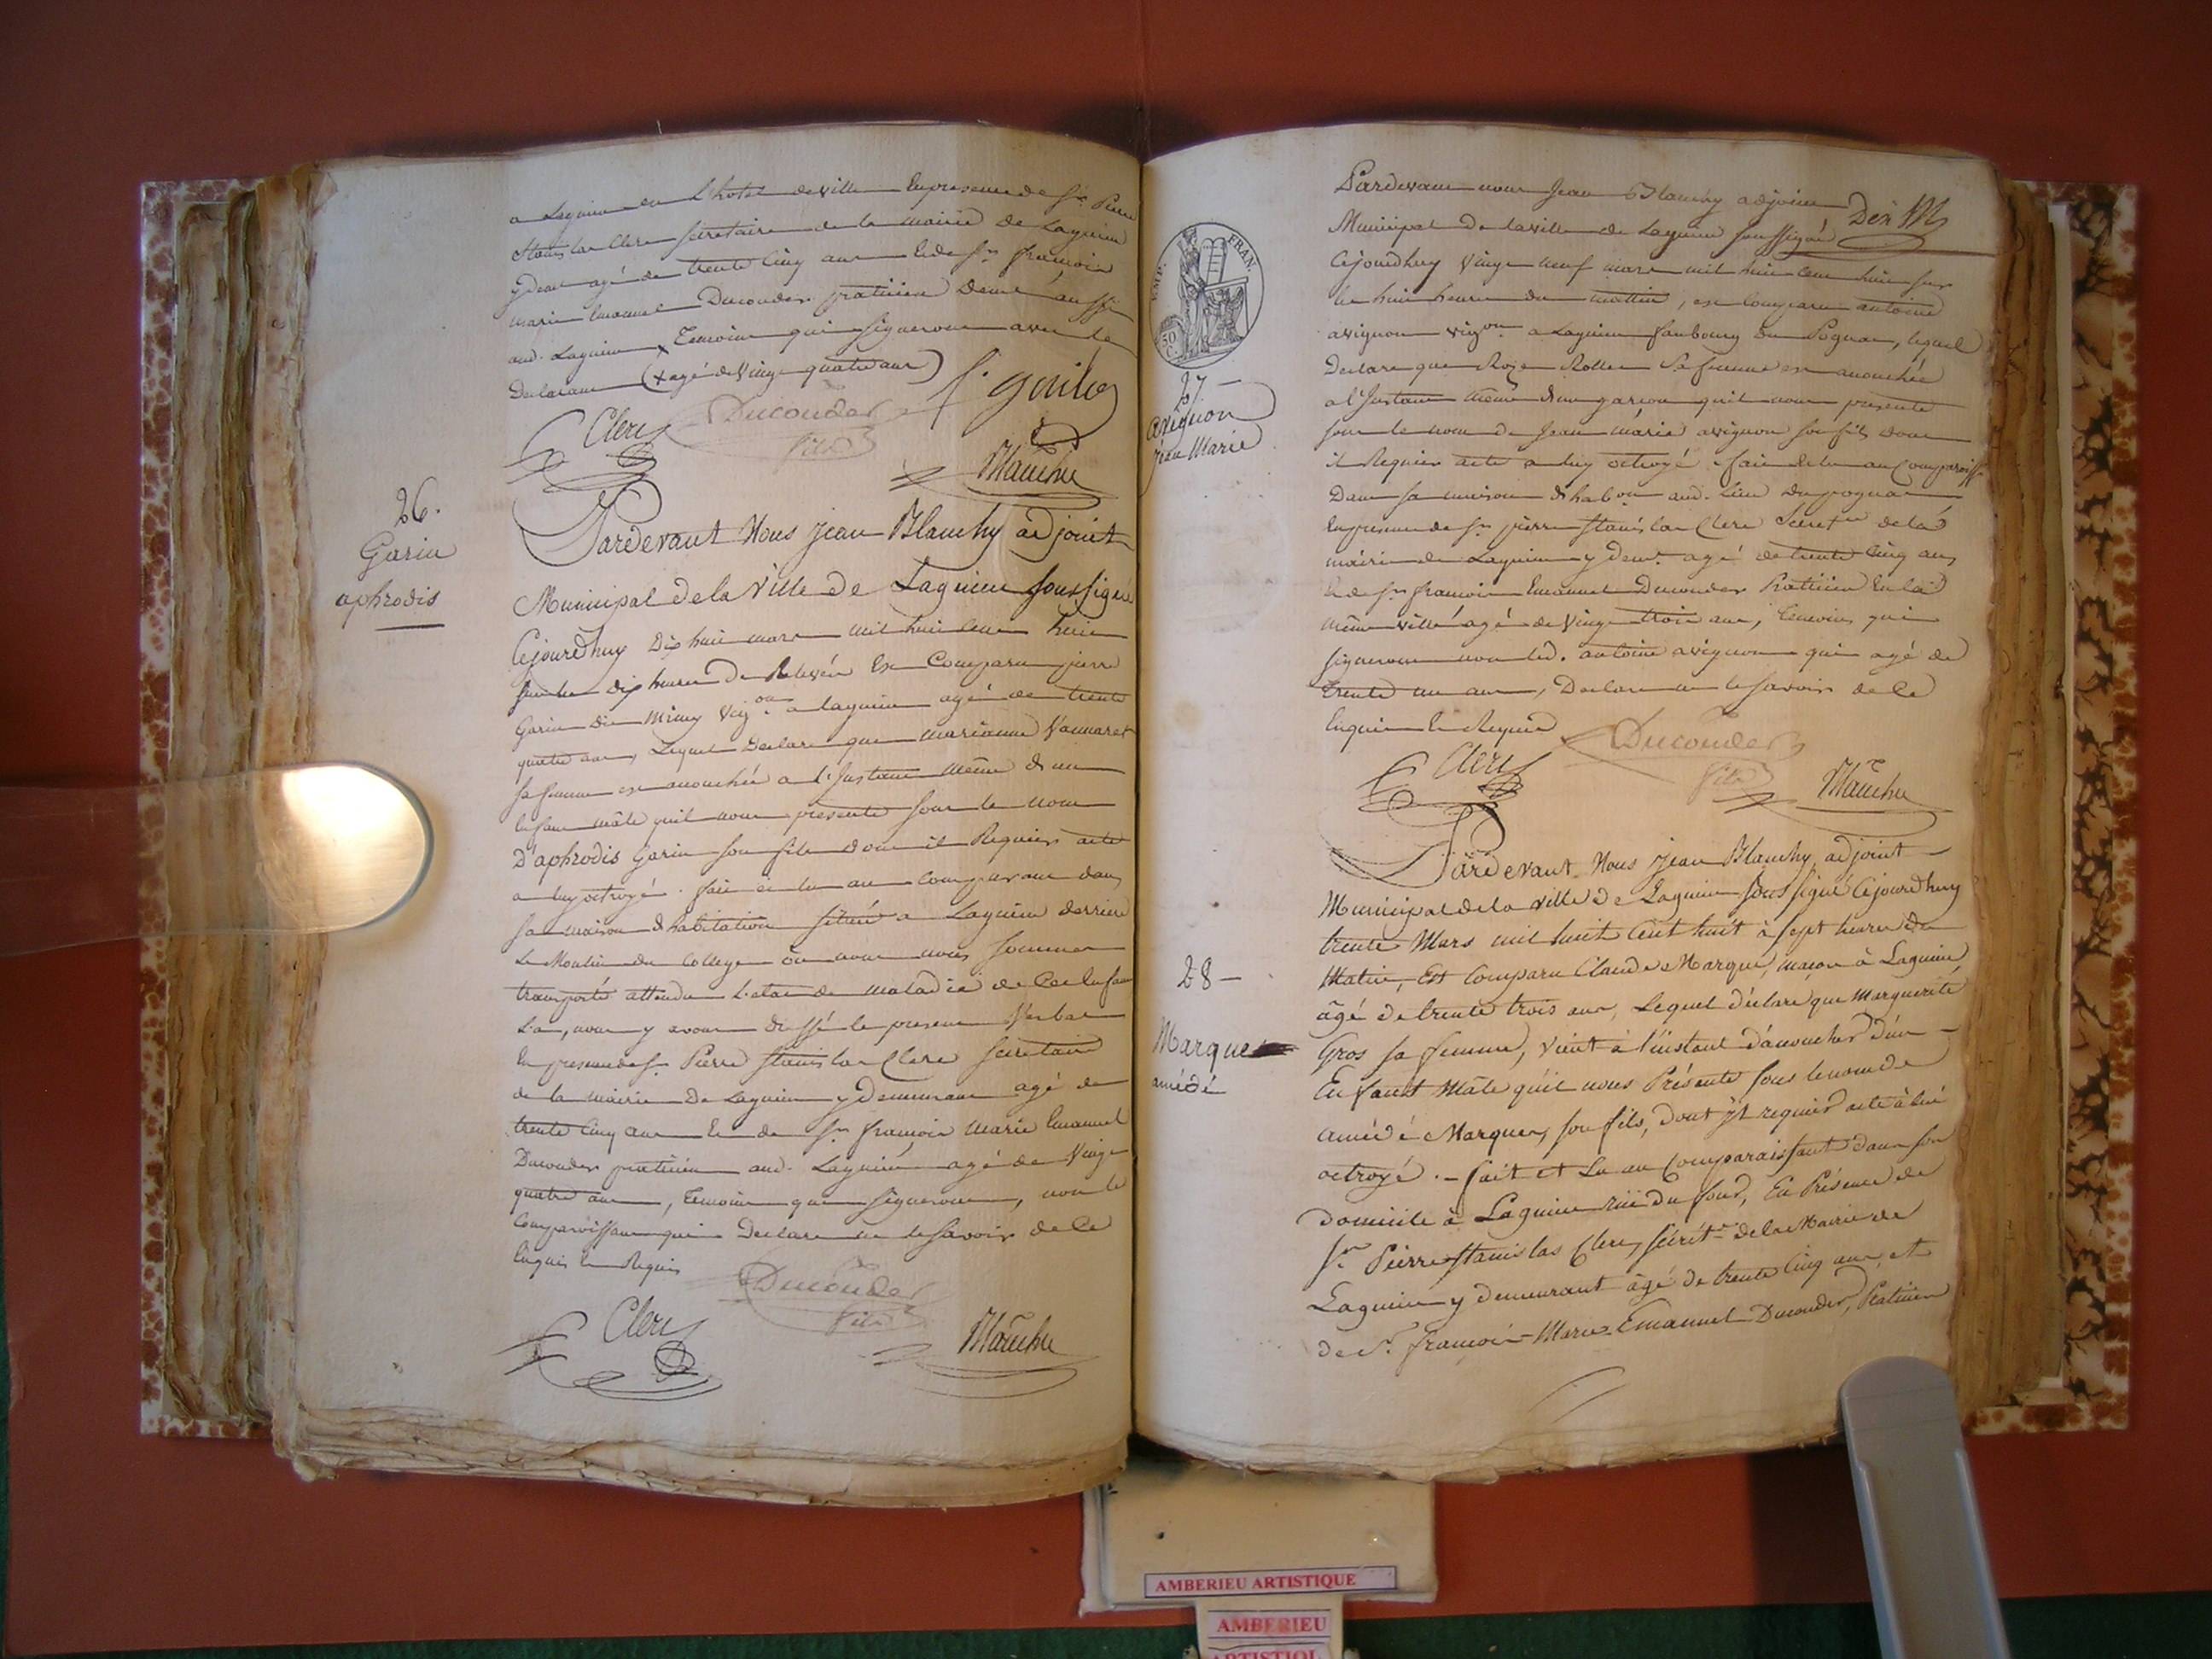 a Lagnieu en L'hotel de ville En presence de Sr. Pierre
Stanislas Clerc secretaire de la mairie de Lagnieu
y demt agé de trente Cinq ans Et de Sr. françois
marie Emanuel Ducouder praticien Demt aussi
aud. Lagnieu x Temoins qui signeront avec le
Declarant (x agé de Vingt quatre ans)
Clerc
Ducouder
fils
Blanchy
26.
Garin
aphrodis
Pardevant Nous Jean Blanchy adjoint
Municipal de la Ville de Lagnieu soussigné
Cejourdhuy Dix huit mars mil huit cent huit
sur les dix heures de Relevée Est Comparu pierre
Garin dit Vigon a lagnieu agé de trente
quatre ans, Lequel Declare que marianne
sa femme est accouchée a l'Instant même d'un
Enfant mâle quil nous presente sous le nom
D'aphrodis Garin son fils dont il Requier acte
a luy octroyé. fait et lu au comparant dans
sa maison d'habitation située a Lagnieu derriere
Le Moulin du College où nous nous sommes
transporté attendu L'etat de maladie de l'Enfant
La, nous y avons dressé le present Verbal
En presence de Sr. Pierre Stanislas Clerc Secretaire
de la mairie De Lagnieu y Demeurant agé de
trente Cinq ans Et de Sr. françois Marie Emanuel
Ducouder praticien aud. Lagnieu agé de Vingt
quatre ans, Temoins qui signeront, non le
Comparoissant qui Declare ne le Savoir de Ce
Enquis Et Requis
Ducouder
fils
Clerc
Blanchy
Pardevant nous Jean Blanchy adjoint
Municipal De la ville de Lagnieu soussigné
Cejourdhuy Vingt neuf mars mil huit Cent huit sur
les huit heures du mattin, est Comparu antoine
avignon vigon a Lagnieu faubourg du Pognat, lequel
Declare que Roze Rollet Sa femme est accouchée
a l'Instant même d'un garcon quil nous presente
sous le nom de Jean marie avignon son fils dont
il Requier acte a luy octroyé. fait et lu au Comparoisst
Dans sa maison d'habon aud. lieu du pognat
En presence de Sr. pierre Stanislas Clerc Secretre de la
mairie de Lagnieu y demt. agé de trente Cinq ans
Et de Sr. françois Emanuel Ducouder Praticien En la
même ville agé de Vingt trois ans, Temoins qui
signeront non led. antoine avignon qui agé de
trente un ans, Declare ne le Savoir de Ce
Enquis Et Requis
EMP. FRAN.
50 C.
27 -
avignon
jean Marie
Ducouder
fils
Clerc
Blanchy
Pardevant Nous Jean Blanchy adjoint
Municipal de la ville de Lagnieu sous signé Cejourdhuy
trente Mars mil huit Cent huit à sept heures du
Matin, Est Comparu Claude Marque, macon à Lagnieu,
âgé de trente trois ans, Lequel déclare que Marguerite
Gros sa femme, vient à l'instant d'accoucher d'un
Enfant Mâle qu'il nous Présente sous le nom de
Amédé Marque, son fils, dont il requier acte à lui
octroyé. - fait et Lu au Comparaissant dans son
domicile à Lagnieu rue du four, En Présence de
Sr. Pierre Stanislas Clerc, Sécrétre de la Mairie de
Lagnieu y demeurant âgé de trente Cinq ans, et
de Sr. françois-Marie-Emanuel Ducouder, Praticien
28 -
Marque
amédé
AMBERIEU ARTISTIQUE
AMBERIEU
ARTISTIQU